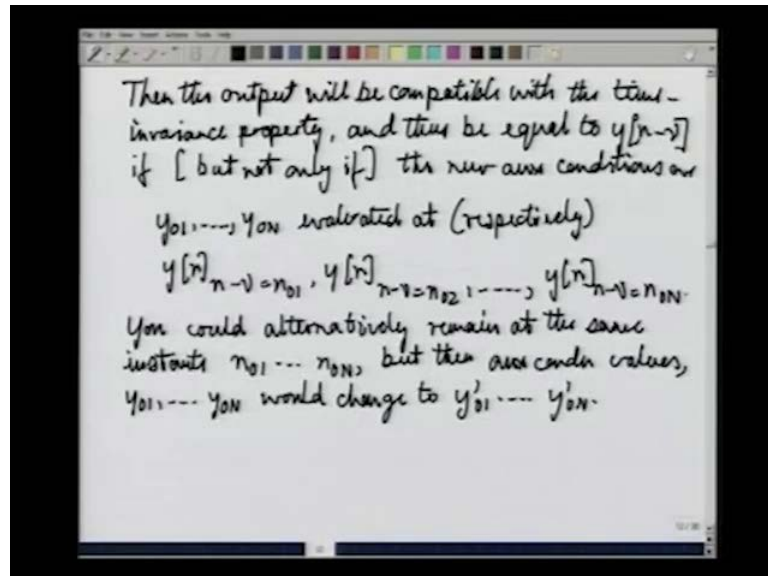 Then the output will be compatible with the time-
invariance property, and thus be equal to y[n-ν]
if [but not only if] the new aux conditions are
y01, ----, y0N evaluated at (respectively)
y[n] n-ν=n01, y[n] n-ν=n02, ----, y[n] n-ν=n0N.
You could alternatively remain at the same
instants n01 --- n0N, but then aux condn values,
y01, --- y0N would change to y'01 ---- y'0N.